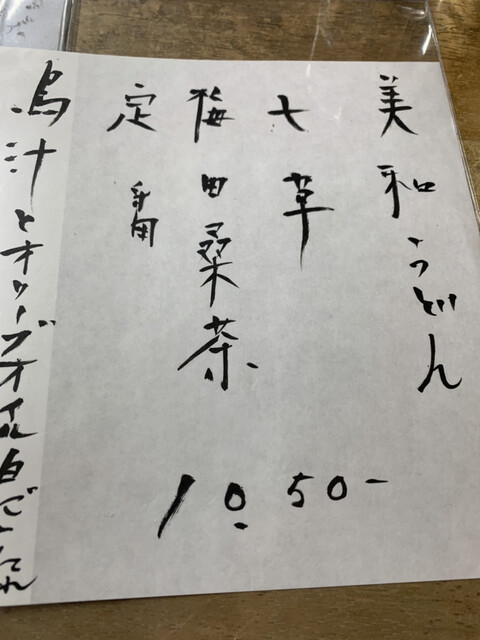 美和うどん
七草
梅田桑茶
定番
10.50-
烏汁とオリーブオイル白ごま